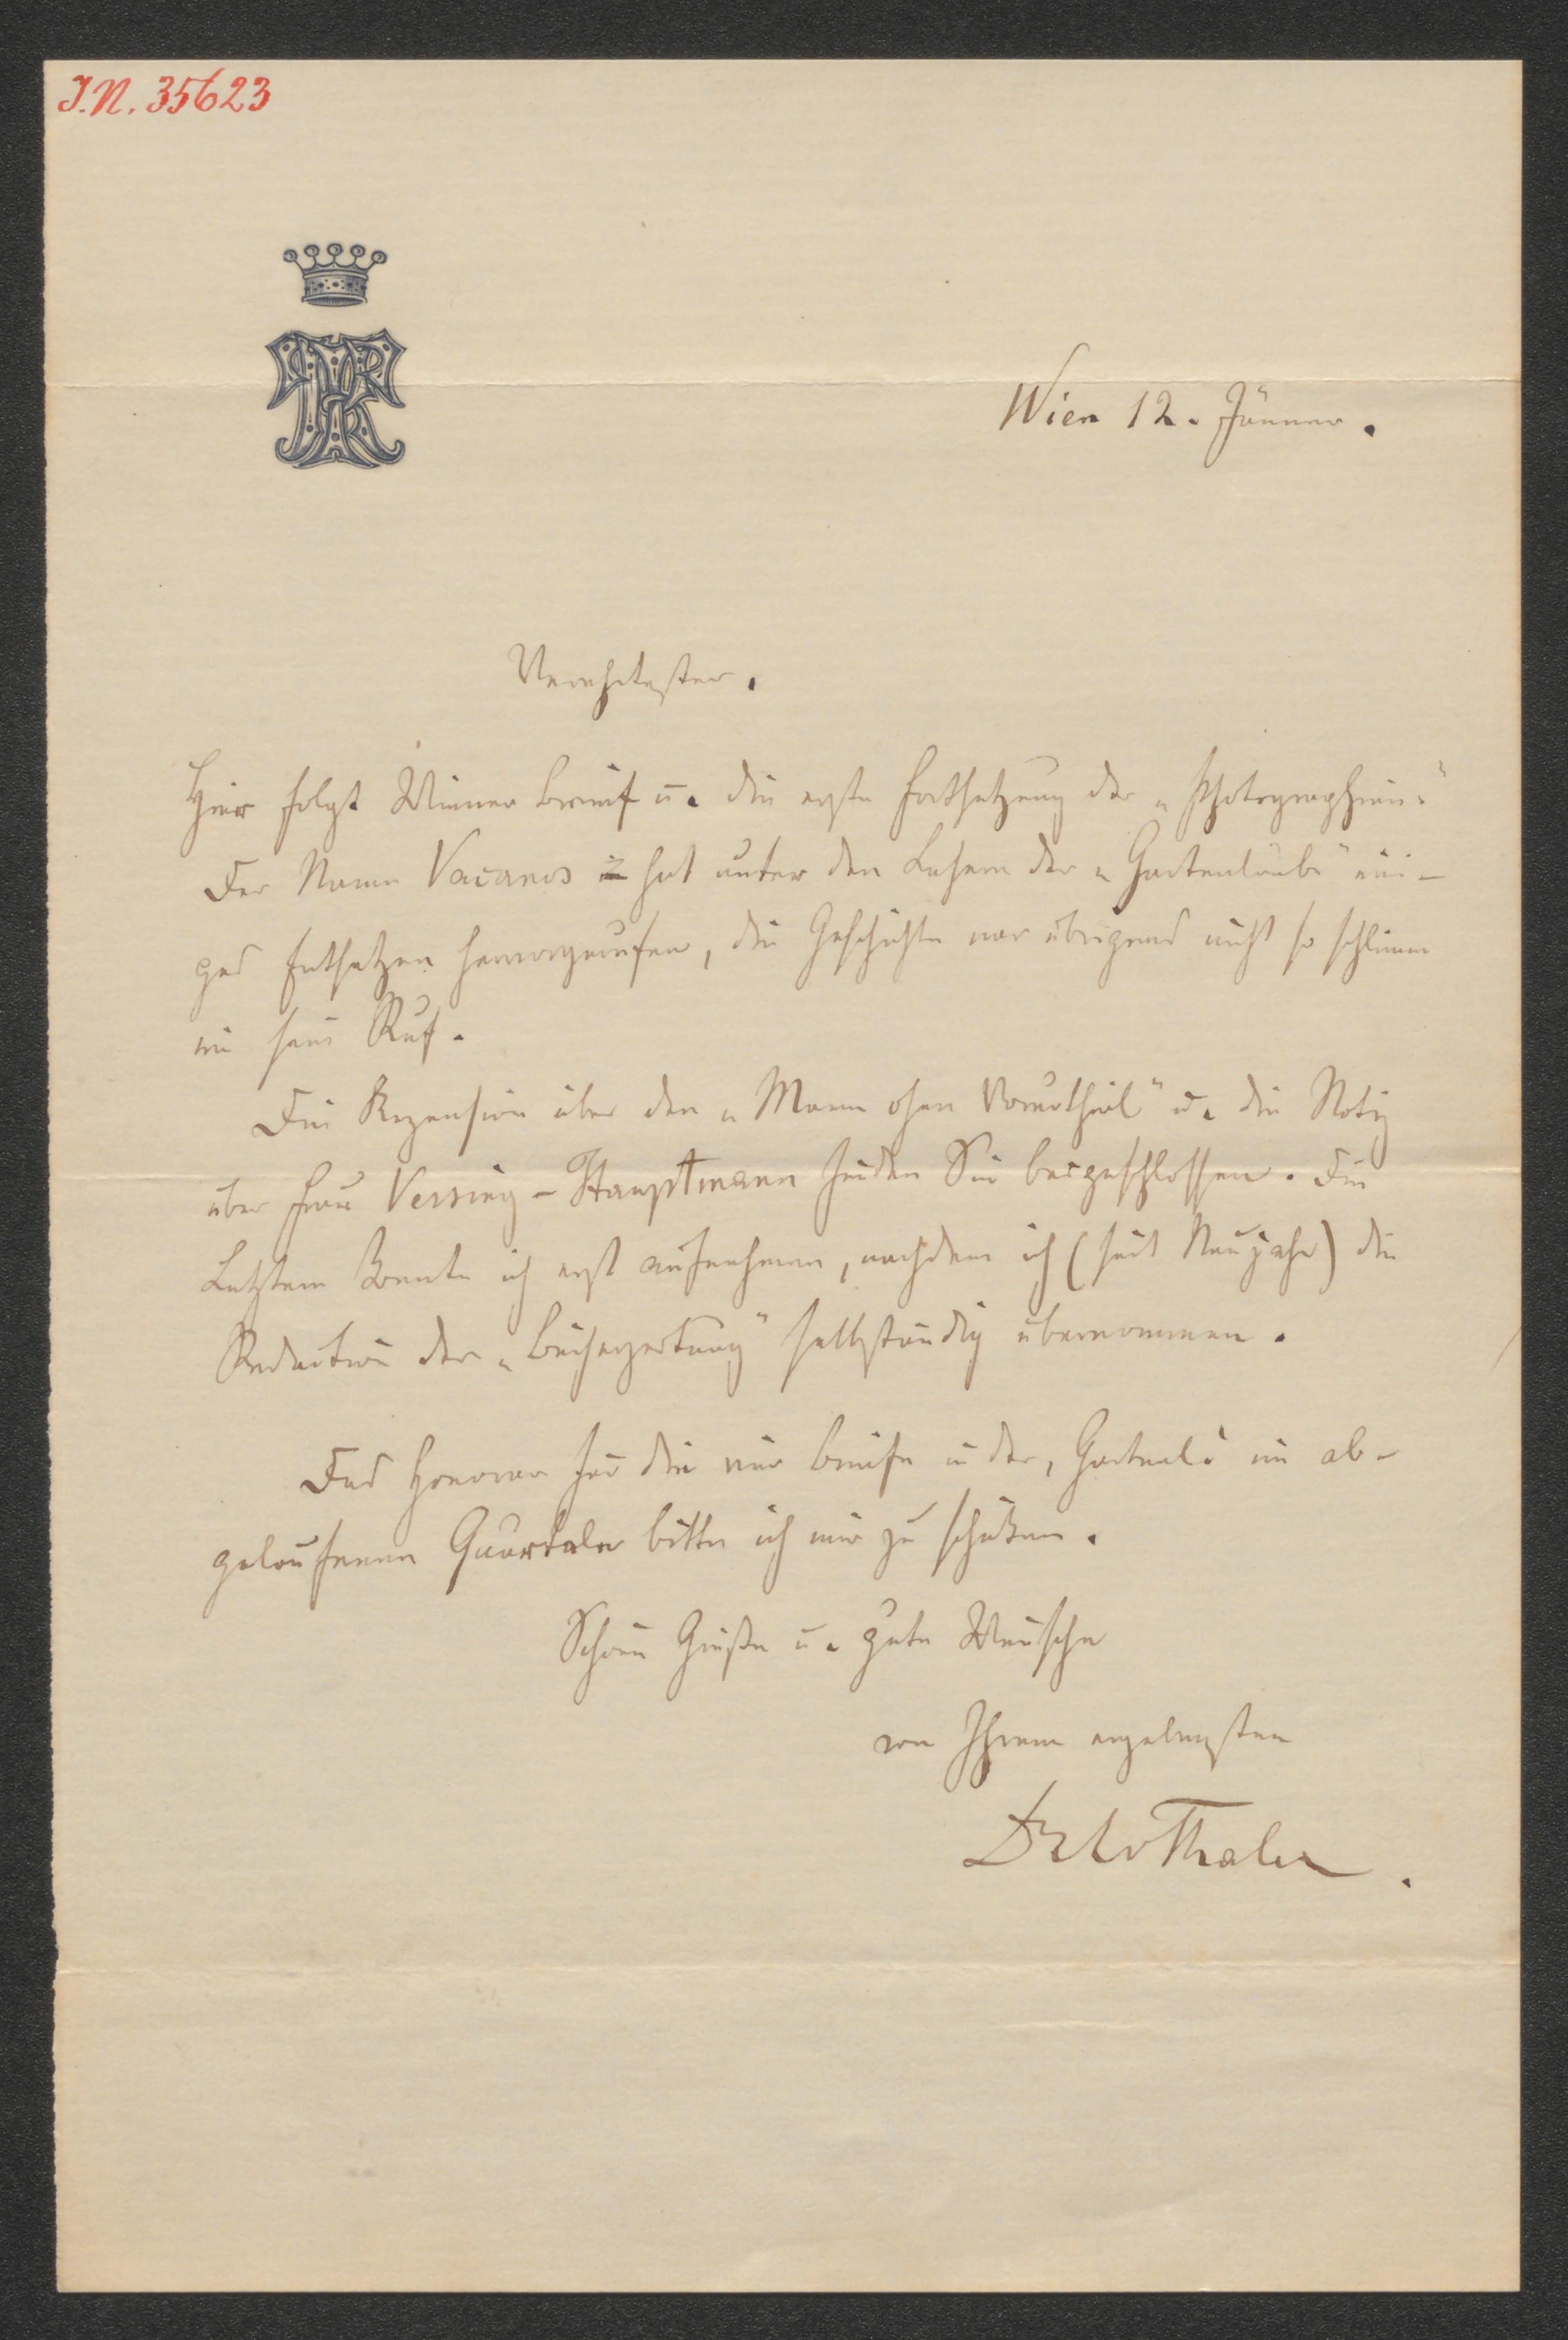 J.N. 35623
Wien 12. Jänner.
Verehrtester.
Hier folgt Wiener Brief u. die erste Fortsetzung der „Photographien“.
Der Name Vacanos hat unter den Lesern der „Gartenlaube“ eini-
ges Entsetzen hervorgerufen, die Geschichte war übrigens nicht so schlimm
wie sein Ruf.
Die Rezension über den „Mann ohne Vorurtheil“ u. die Notiz
über Frau Versing-Hauptmann finden Sie beigeschlossen. Die
Letztere konnte ich erst aufnehmen, nachdem ich (seit Neujahr) die
Redaction der selbständig übernommen.
Das Honorar für die vier Briefe in der „Gartenl.“ im ab-
gelaufenen Quartale bitte ich mir zu schicken.
Schöne Grüße u. gute Wünsche
von Ihrem ergebensten
Thaler.